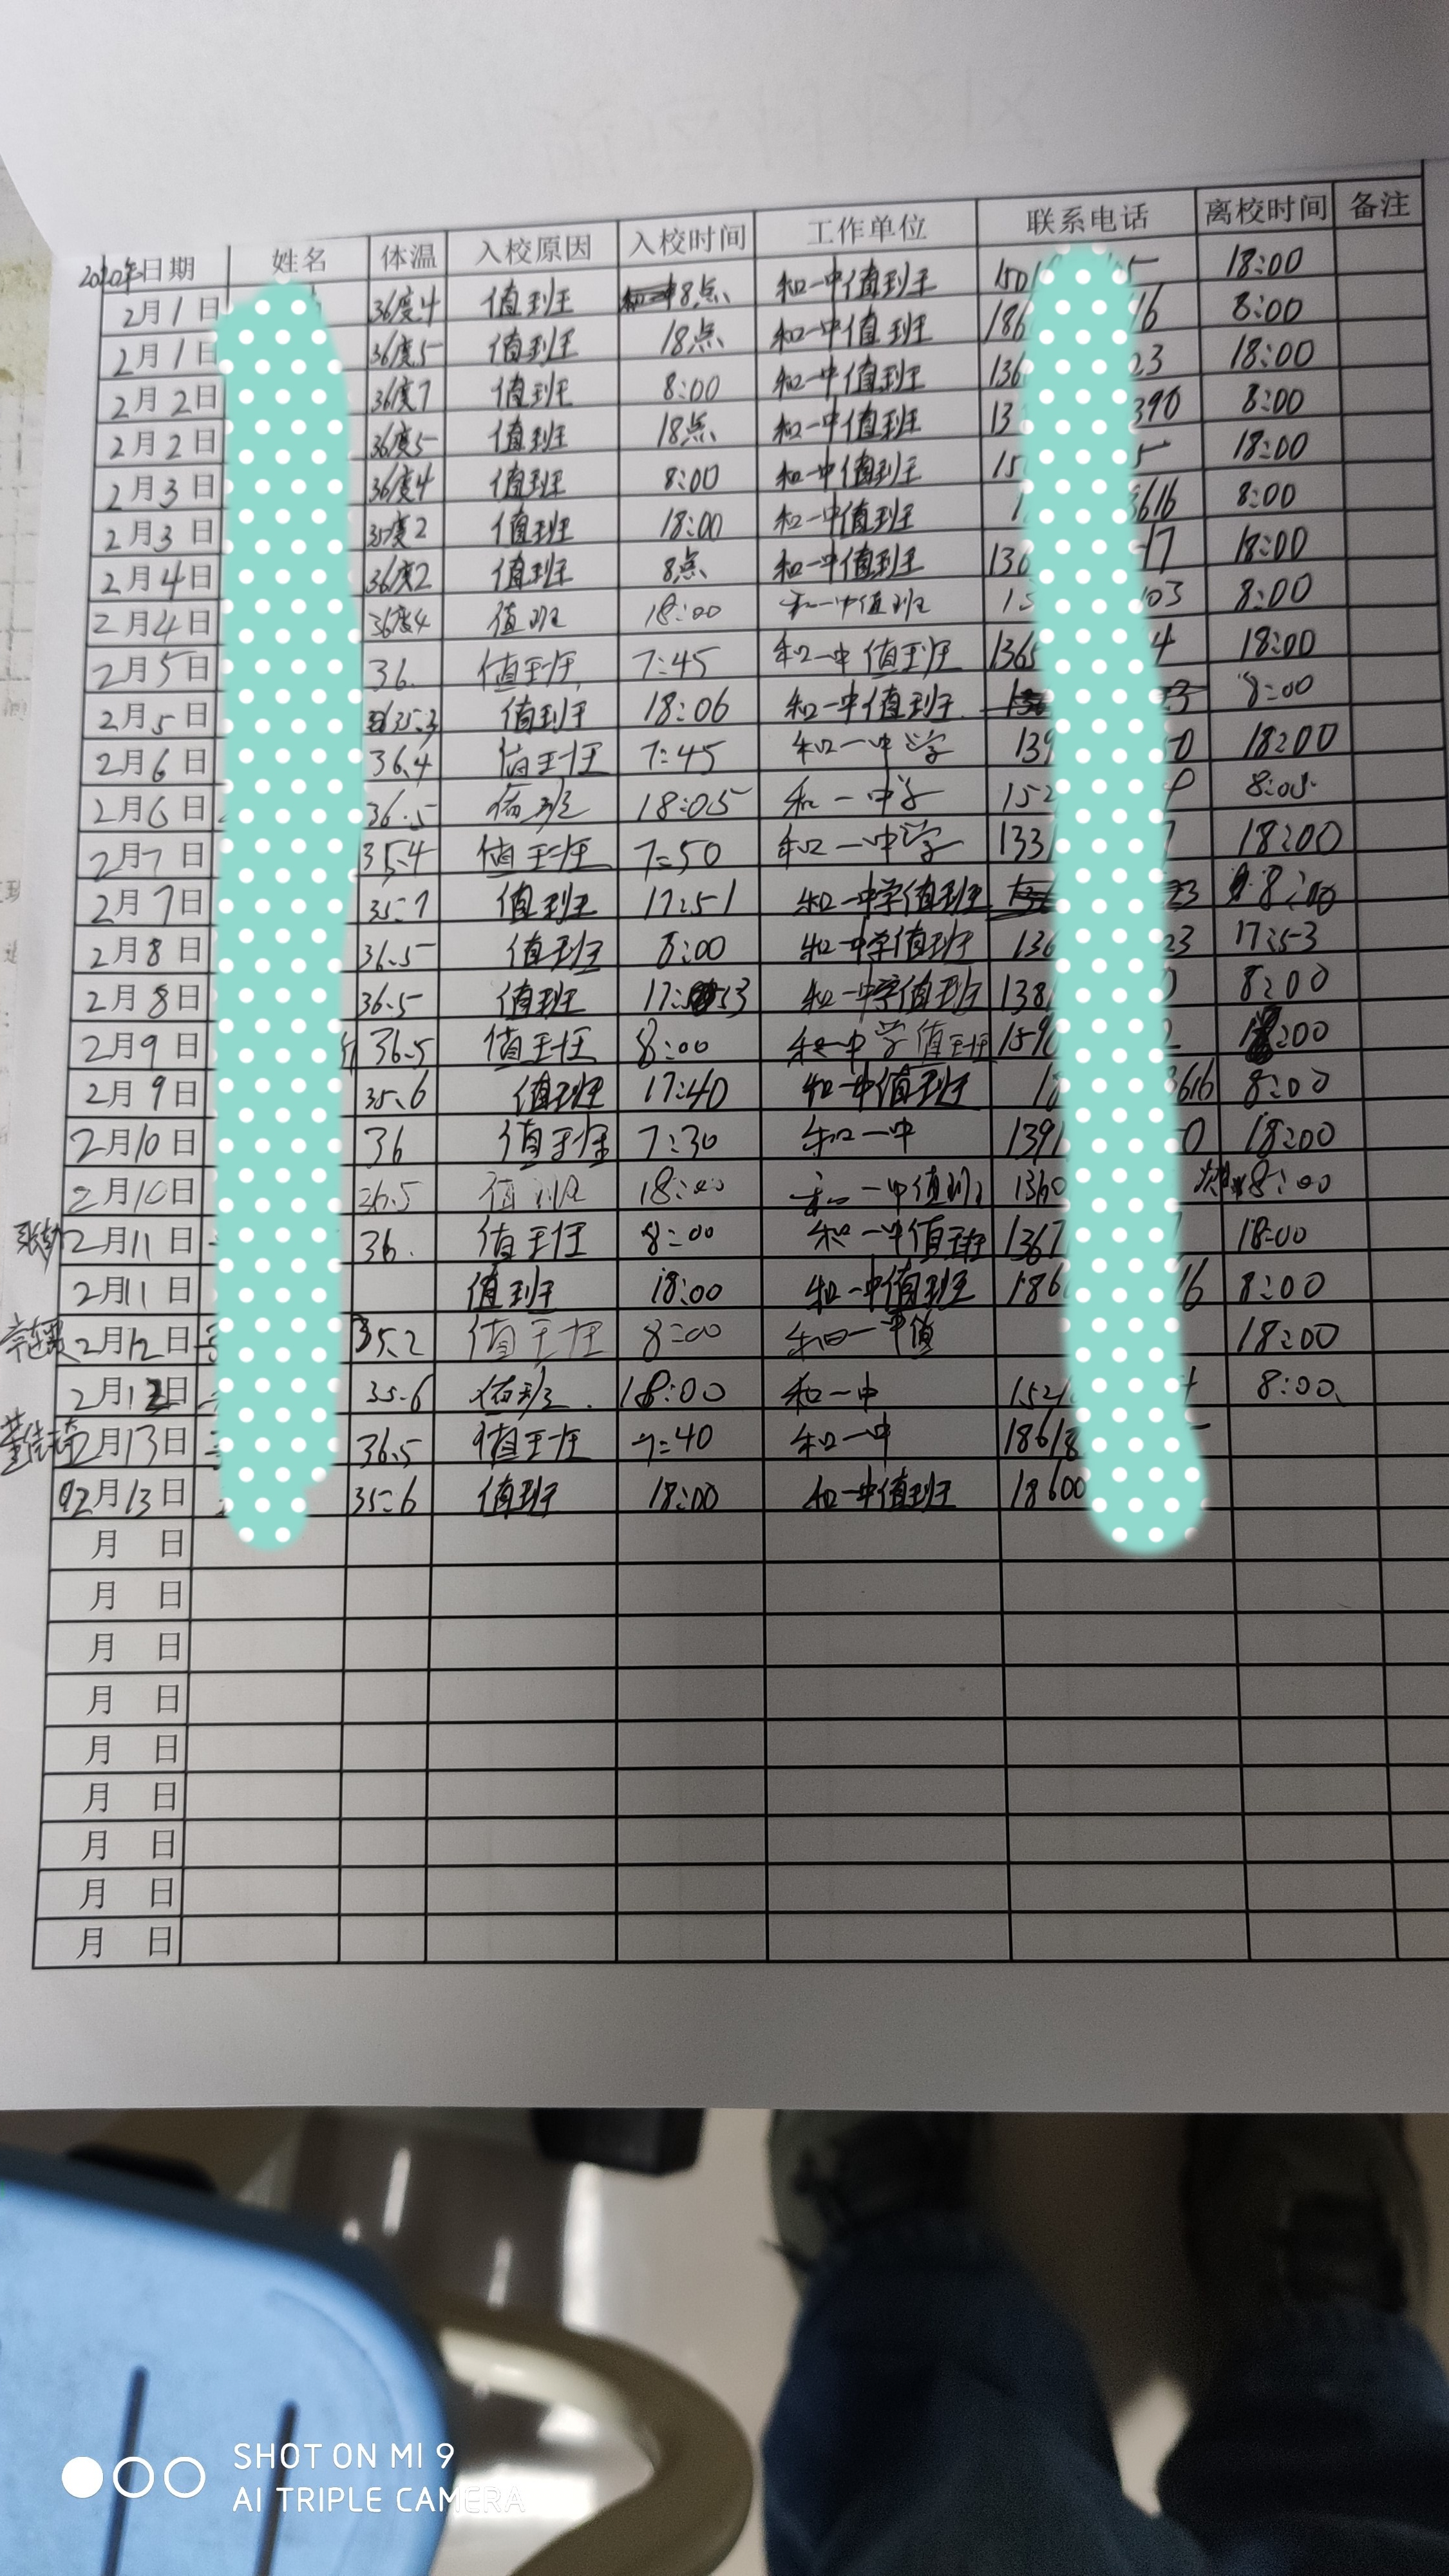 2020年日期 姓名 体温 入校原因 入校时间 工作单位 联系电话 离校时间 备注
2月1日 36度4 值班 8点 和一中值班 150 5 18:00
2月1日 36度5 值班 18点 和一中值班 186 16 8:00
2月2日 36度7 值班 8:00 和一中值班 136 23 18:00
2月2日 36度5 值班 18点 和一中值班 13 390 8:00
2月3日 36度4 值班 8:00 和一中值班 15 5 18:00
2月3日 35度2 值班 18:00 和一中值班 1 3616 8:00
2月4日 36度2 值班 8点 和一中值班 136 17 18:00
2月4日 36度4 值班 18:00 和一中值班 15 03 8:00
2月5日 36. 值班 7:45 和一中值班 1365 4 18:00
2月5日 35.3 值班 18:06 和一中值班 8:00
2月6日 36.4 值班 7:45 和一中学 139 0 18:00
2月6日 36.5 值班 18:05 和一中学 152 8:05
2月7日 35.4 值班 7:50 和一中学 133 7 18:00
2月7日 35.7 值班 17:51 和一中学值班 23 8:00
2月8日 36.5 值班 8:00 和一中学值班 136 23 17:53
2月8日 36.5 值班 17:53 和一中学值班 138 0 8:00
2月9日 36.5 值班 8:00 和一中学值班 159 2 18:00
2月9日 35.6 值班 17:40 和一中值班 18 3616 8:00
2月10日 36 值班 7:30 和一中 1391 0 18:00
2月10日 36.5 值班 18:00 和一中值班 1360 8:00
2月11日 36. 值班 8:00 和一中值班 1367 18:00
2月11日 值班 18:00 和一中值班 186 16 8:00
2月12日 35.2 值班 8:00 和一中值 18:00
2月12日 35.6 值班. 18:00 和一中 152 4 8:00
董佳琦 2月13日 36.5 值班 7:40 和一中 18618
2月13日 35.6 值班 18:00 和一中值班 18600
月 日
月 日
月 日
月 日
月 日
月 日
月 日
月 日
月 日
SHOT ON MI 9
AI TRIPLE CAMERA